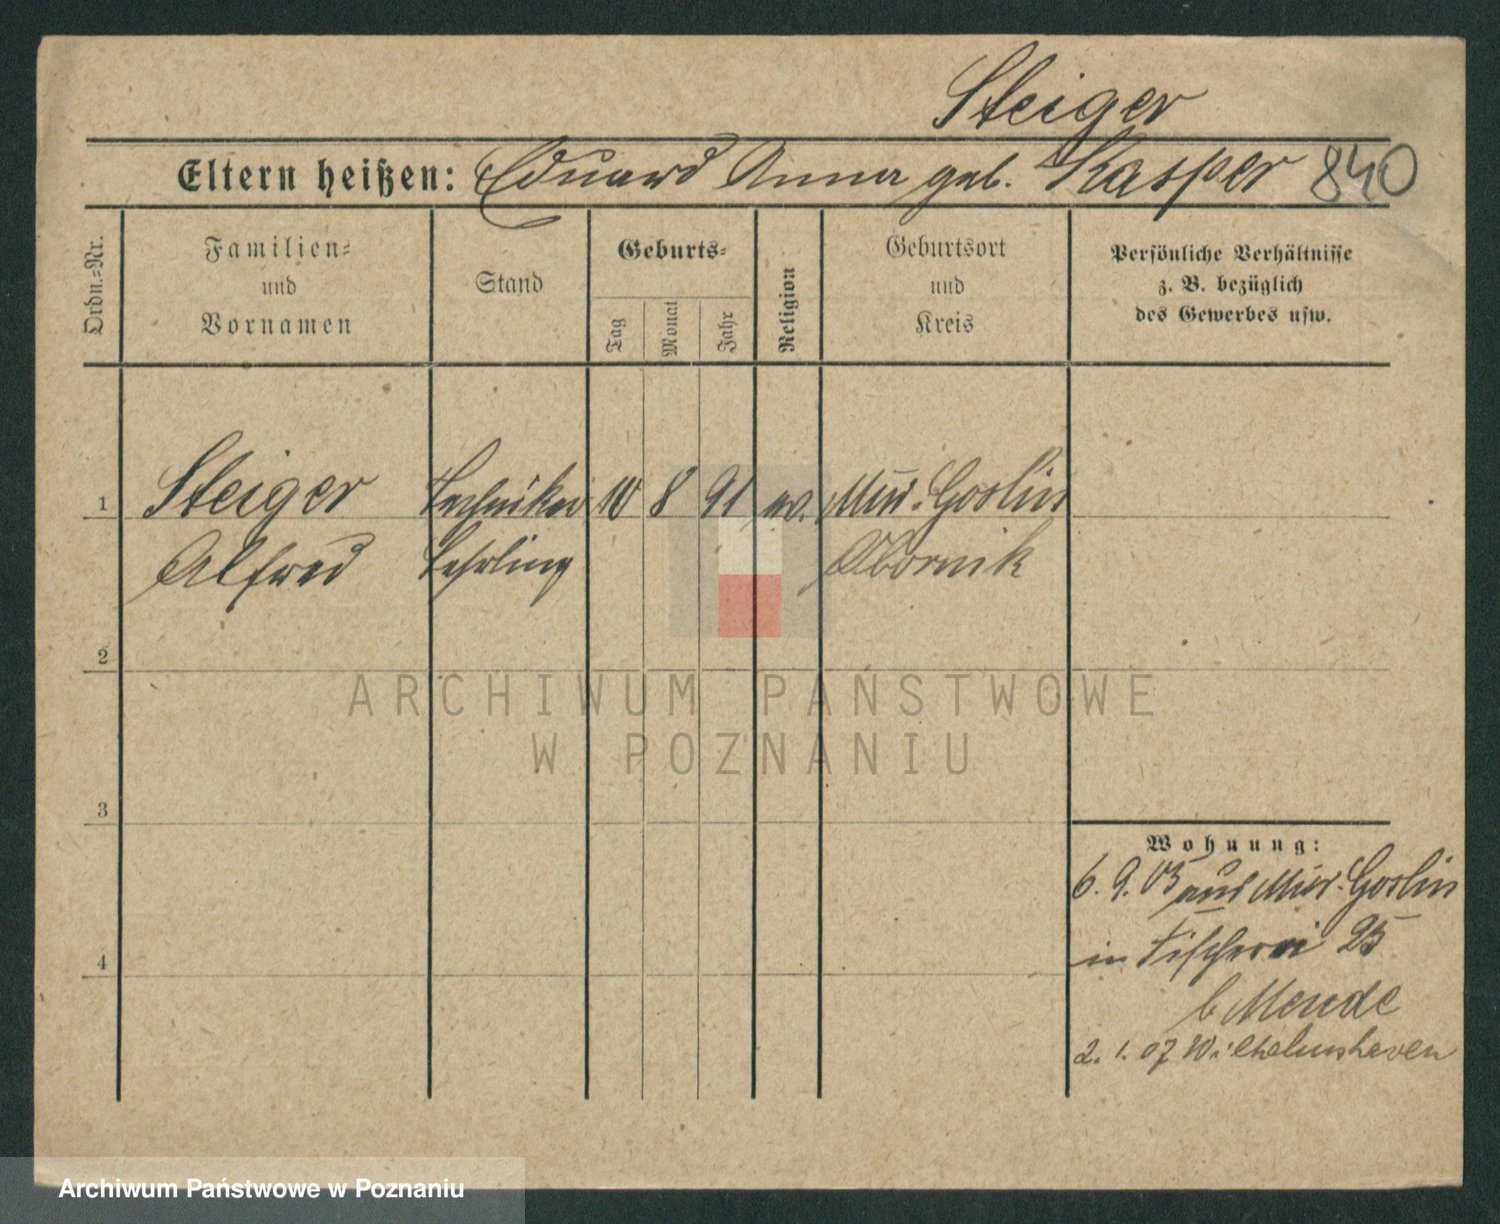 Steiger
Eltern heißen: Eduard Anna geb. Kasper 840
Ordn.-Nr.
Familien-
und
Vornamen
Stand
Geburts-
Tag
Monat
Jahr
Religion
Geburtsort
und
Kreis
Persönliche Verhältnisse
z. B. bezüglich
des Gewerbes usw.
1 Steiger Techniker 10 8 91 ev. Mur. Goslin
Alfred Lehrling Obornik
2
3
4
Wohnung:
6. 9. 05 aus Mur. Goslin
in Fischerei 25
b Mende
2. 1. 07 Wilhelmshaven
ARCHIWUM PAŃSTWOWE
W POZNANIU
Archiwum Państwowe w Poznaniu